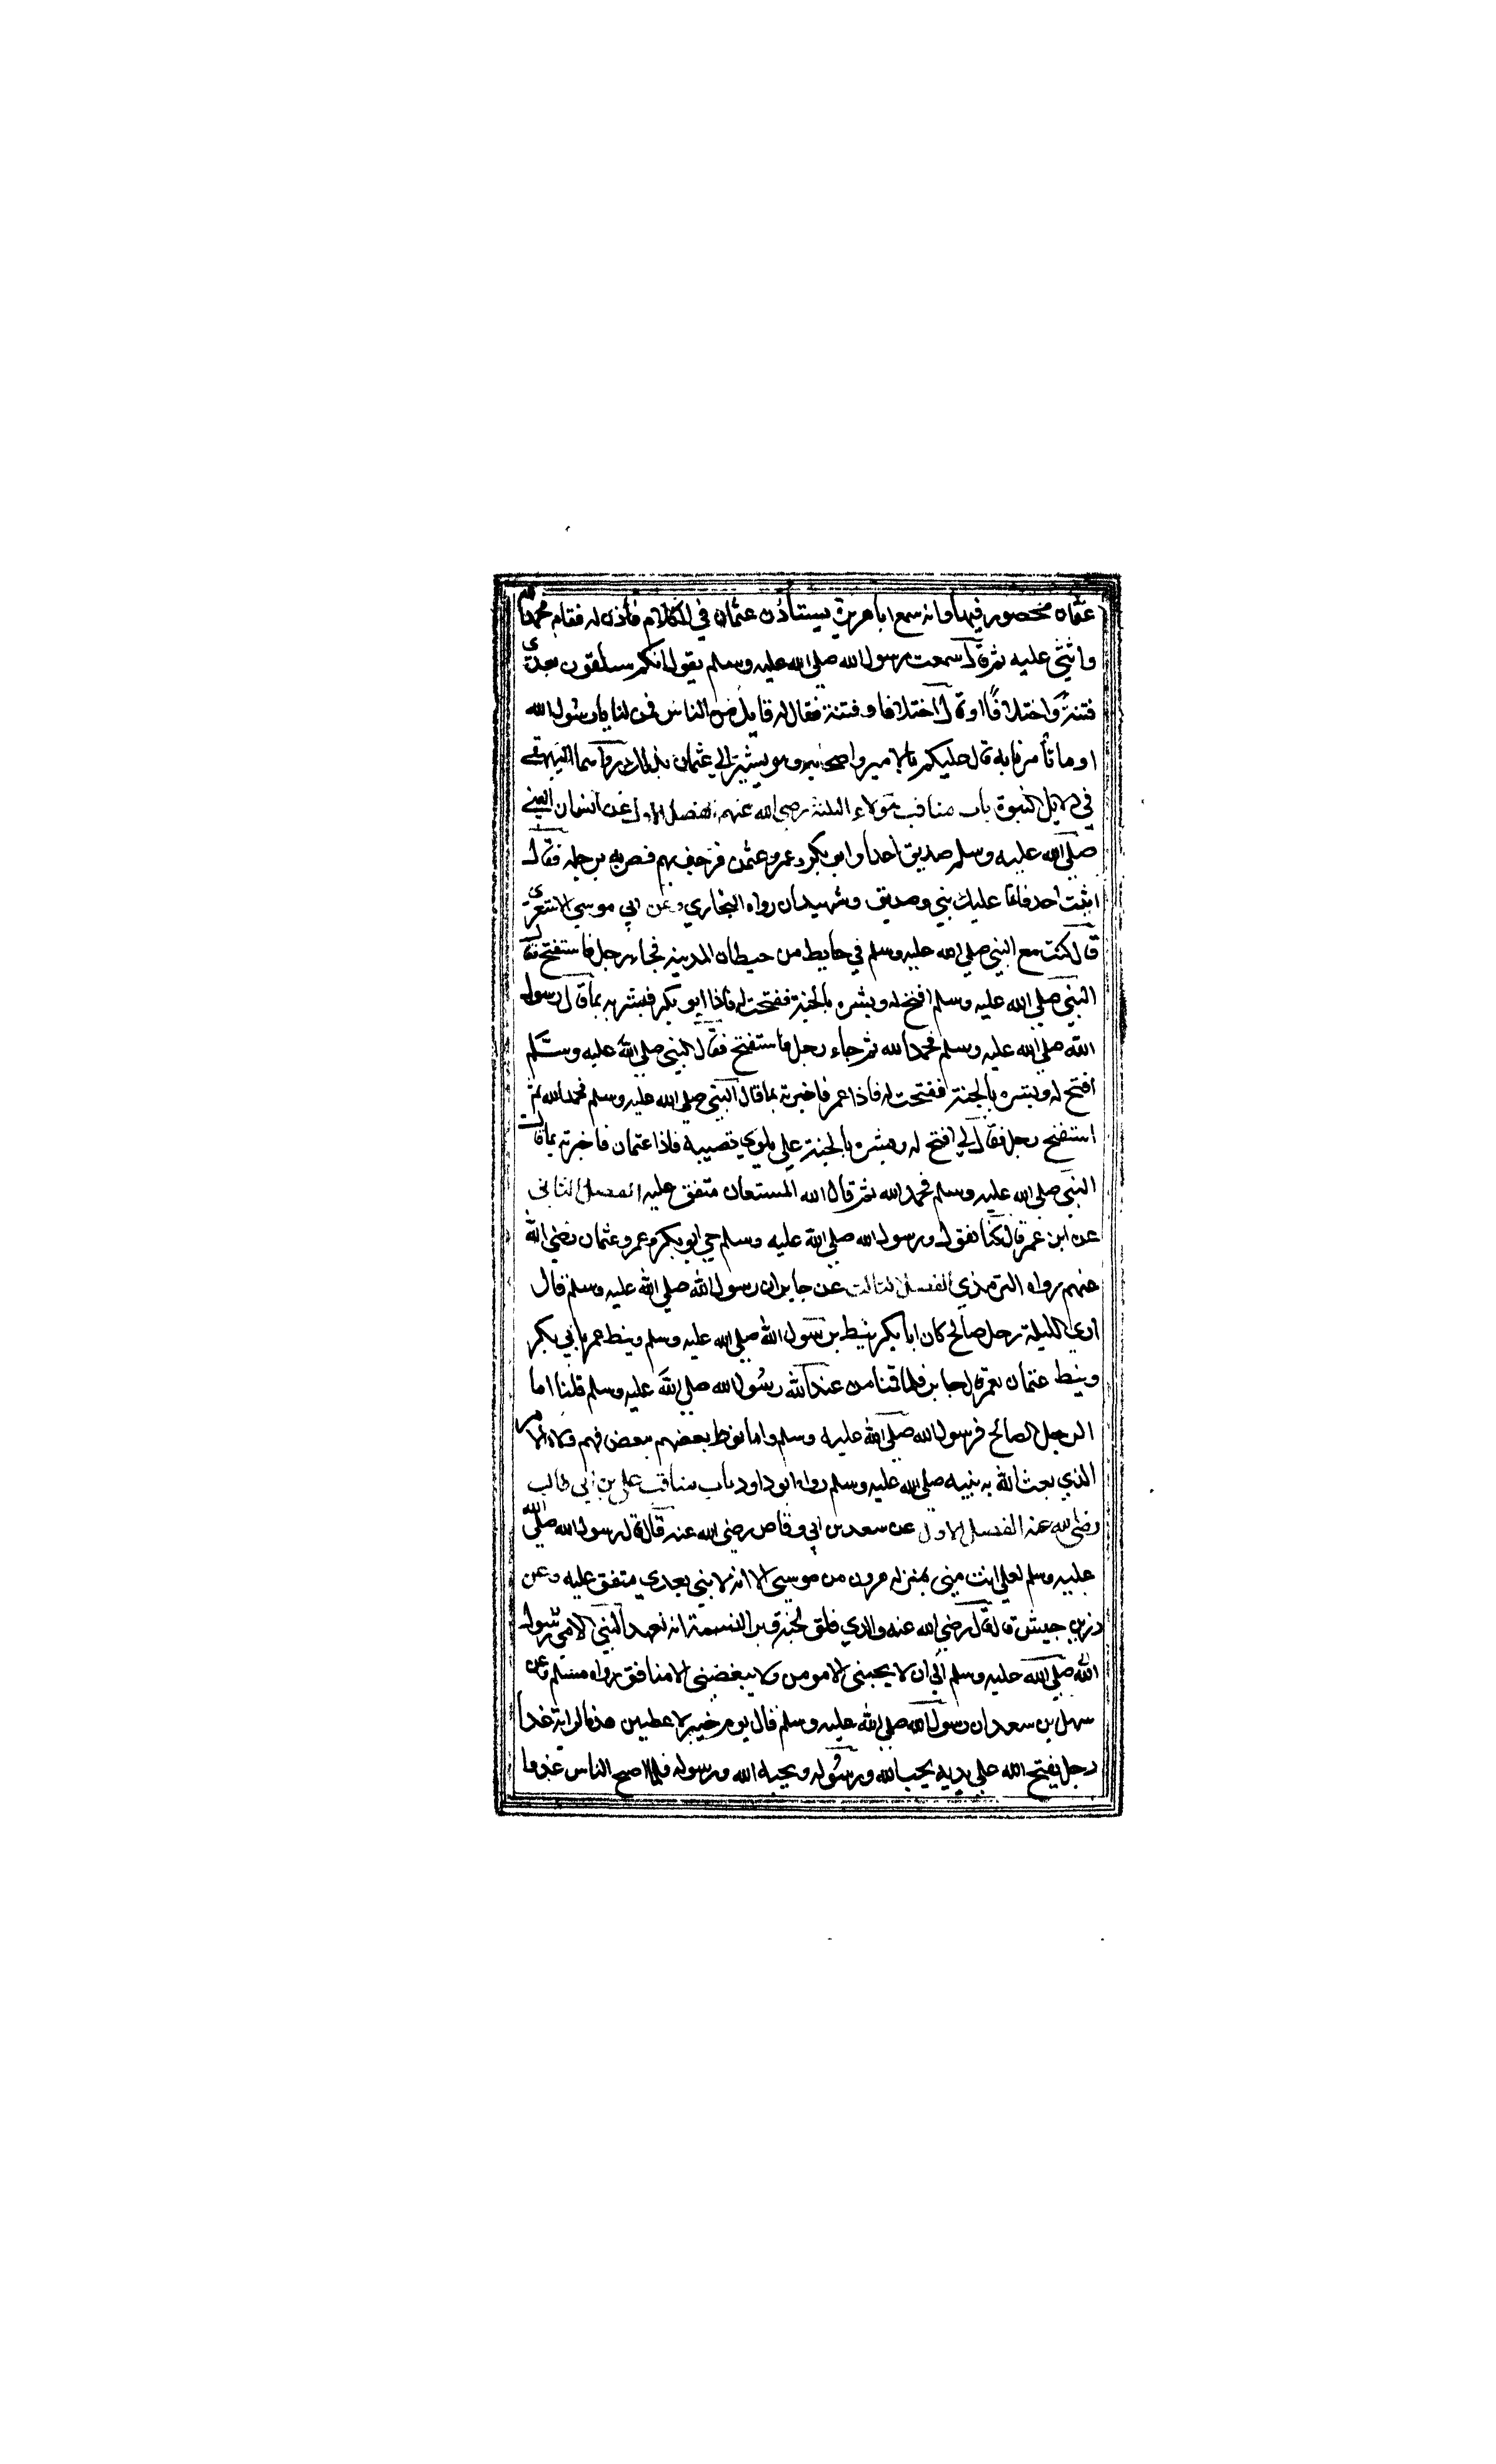 عثمان محصور فيها وانه سمع ابا هريرة يستأذن عثمان في الكلام فأذن له فقام فحمد الله
واثنى عليه ثم قال سمعت رسول الله صلى الله عليه وسلم يقول انكم ستلقون بعدي
فتنة واختلافًا او قال اختلافا وفتنة فقال له قايل من الناس فمن لنا يا رسول الله
او ما تأمرنا به قال عليكم بالامير واصحابه وهو يشير الى عثمان بذلك رواهما البيهقي
في دلايل النبوة باب مناقب هؤلاء الثلثة رضي الله عنهم الفصل الاول عن انس ان النبي
صلى الله عليه وسلم صعد احدا وابو بكر وعمر وعثمن فرجف بهم فضربه برجله فقال
اثبت احد فانما عليك نبي وصديق وشهيدان رواه البخاري وعن ابي موسى الاشعري
قال كنت مع النبي صلى الله عليه وسلم في حايط من حيطان المدينة فجاء رجل فاستفتح فقال
النبي صلى الله عليه وسلم افتح له وبشره بالجنة ففتحت له فاذا ابو بكر فبشرته بما قال رسول
الله صلى الله عليه وسلم فحمد الله ثم جاء رجل فاستفتح فقال النبي صلى الله عليه وسلم
افتح له وبشره بالجنة ففتحت له فاذا عمر فاخبرته بما قال النبي صلى الله عليه وسلم فحمد الله ثم
استفتح رجل فقال لي افتح له وبشره بالجنة على بلوى تصيبه فاذا عثمان فاخبرته بما قال
النبي صلى الله عليه وسلم فحمد الله ثم قال الله المستعان متفق عليه الفصل الثاني
عن ابن عمر قال كنا نقول ورسول الله صلى الله عليه وسلم حي ابو بكر وعمر وعثمان رضي الله
عنهم رواه الترمذي الفصل الثالث عن جابر ان رسول الله صلى الله عليه وسلم قال
اري الليلة رجل صالح كان ابا بكر نيط برسول الله صلى الله عليه وسلم ونيط عمر بابي بكر
ونيط عثمان بعمر قال جابر فلما قمنا من عند الله رسول الله صلى الله عليه وسلم قلنا اما
الرجل الصالح فرسول الله صلى الله عليه وسلم واما نوط بعضهم ببعض فهم ولاة الامر
الذي بعث الله به نبيه صلى الله عليه وسلم رواه ابو داود باب مناقب علي بن ابي طالب
رضي الله عنه الفصل الاول عن سعد بن ابي وقاص رضي الله عنه قال قال رسول الله صلى الله
عليه وسلم لعلي انت مني بمنزلة هرون من موسى الا انه لا نبي بعدي متفق عليه وعن
زر بن حبيش قال قال رضي الله عنه والذي فلق الحبة وبرا النسمة انه لعهد النبي الامي رسول
الله صلى الله عليه وسلم الي ان لا يحبني الا مومن ولا يبغضني الا منافق رواه مسلم وعن
سهل بن سعد ان رسول الله صلى الله عليه وسلم قال يوم خيبر لاعطين هذه الراية غدا
رجل يفتح الله على يديه يحب الله ورسوله ويحبه الله ورسوله فلما اصبح الناس غدوا